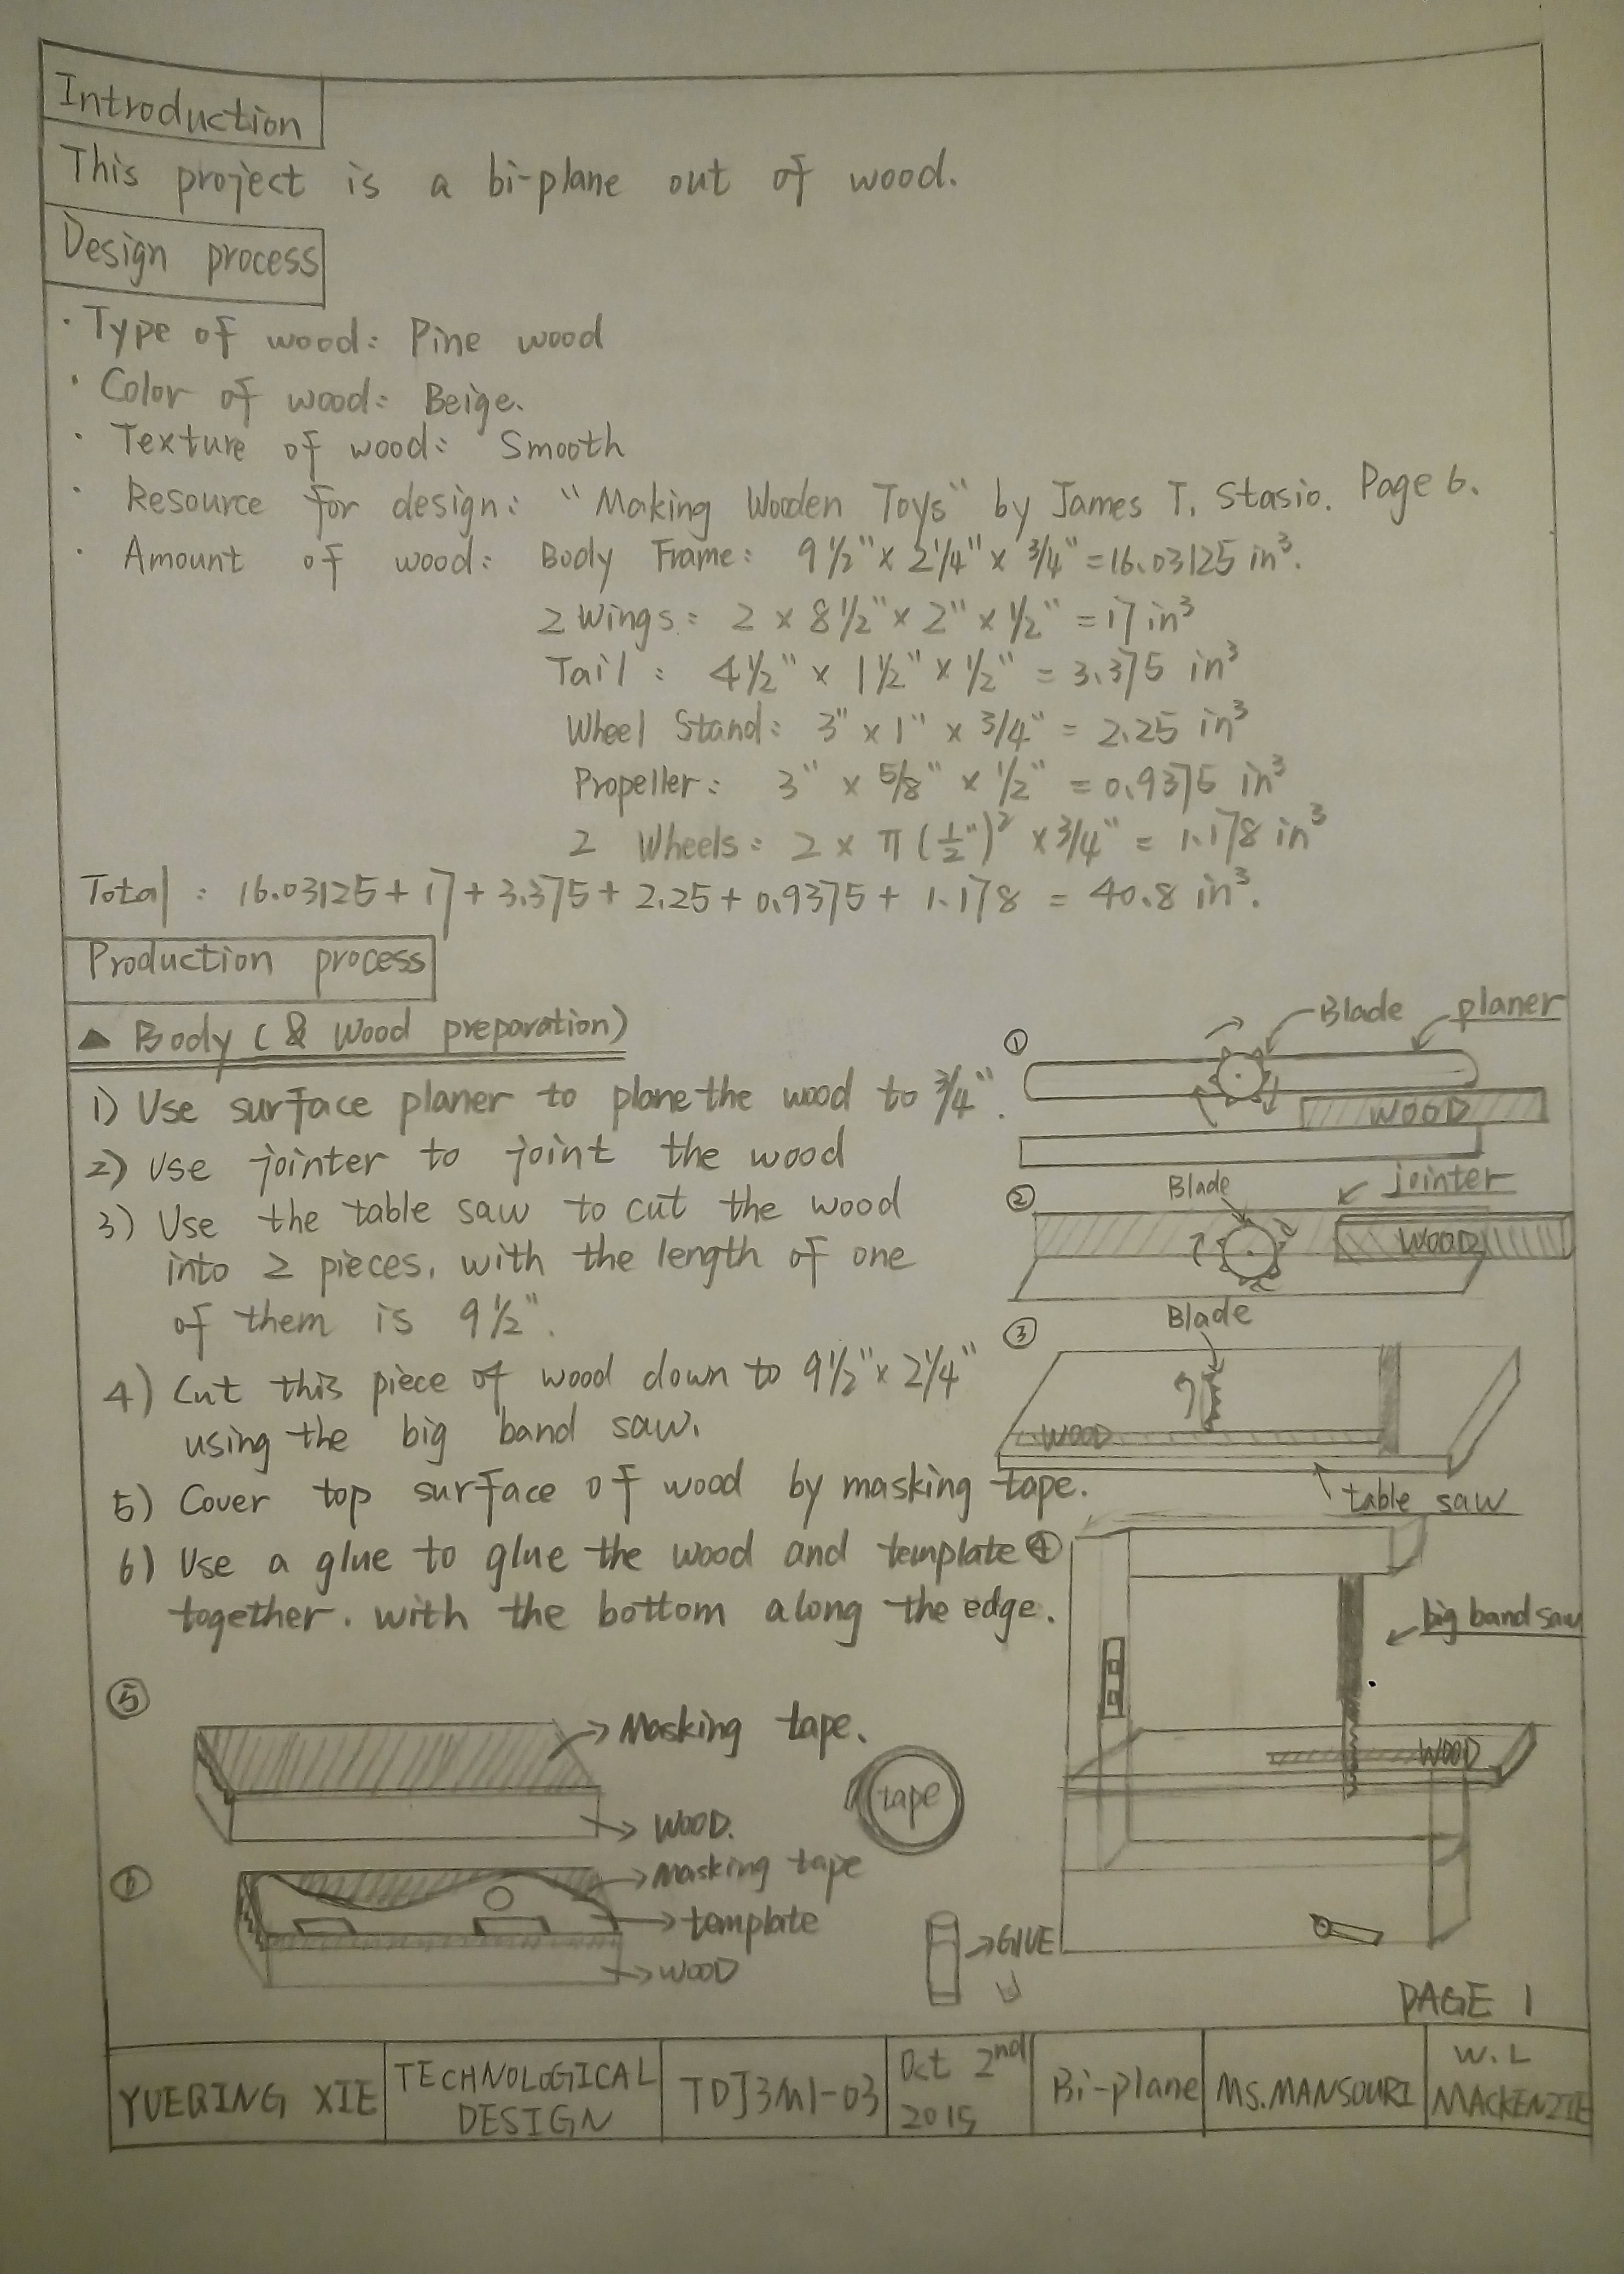 Introduction
This project is a bi-plane out of wood.
Design process
· Type of wood: Pine wood
· Color of wood: Beige.
· Texture of wood: Smooth
· Resource for design: "Making Wooden Toys" by James T. Stasio. Page 6.
· Amount of wood: Body Frame: 9 1/2" x 2 1/4" x 3/4" = 16.03125 in³.
2 Wings: 2 x 8 1/2" x 2" x 1/2" = 17 in³
Tail: 4 1/2" x 1 1/2" x 1/2" = 3.375 in³
Wheel Stand: 3" x 1" x 3/4" = 2.25 in³
Propeller: 3" x 5/8" x 1/2" = 0.9375 in³
2 Wheels: 2 x π (1/2")² x 3/4" = 1.178 in³
Total: 16.03125 + 17 + 3.375 + 2.25 + 0.9375 + 1.178 = 40.8 in³.
Production process
▲ Body (& Wood preparation)
1) Use surface planer to plane the wood to 3/4".
2) Use jointer to joint the wood
3) Use the table saw to cut the wood
into 2 pieces, with the length of one
of them is 9 1/2".
4) Cut this piece of wood down to 9 1/2" x 2 1/4"
using the big band saw.
5) Cover top surface of wood by masking tape.
6) Use a glue to glue the wood and template
together. with the bottom along the edge.
① Blade planer
WOOD
② Blade jointer
WOOD
③ Blade
WOOD
table saw
④
big band saw
WOOD
⑤
Masking tape.
WOOD.
tape
⑥
Masking tape
template
WOOD
GLUE
PAGE 1
YUEQING XIE
TECHNOLOGICAL
DESIGN
TDJ3M1-03
Oct 2nd
2015
Bi-plane
MS.MANSOURI
W.L
MACKENZIE